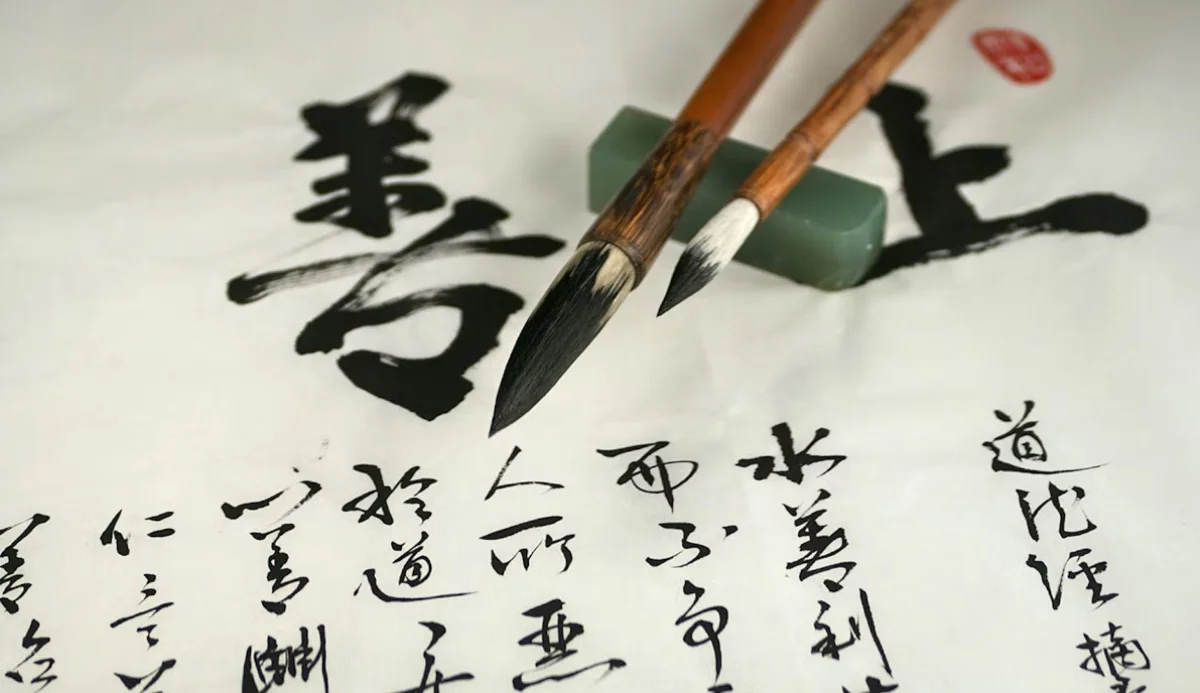 上善
道德經摘
水善利
而不争
人所惡
於道
心善淵
仁言
善